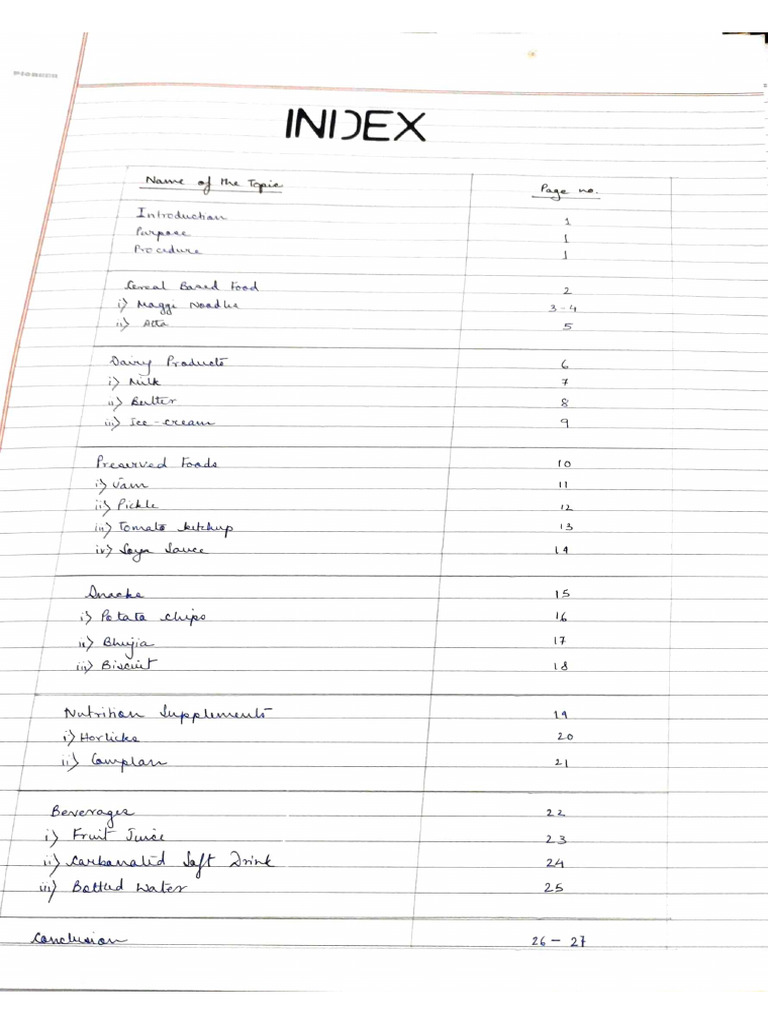 PIONEER
INDEX
Name of the Topic Page no.
Introduction 1
Purpose 1
Procedure 1
Cereal Based Food 2
i) Maggi Noodles 3-4
ii) Atta 5
Dairy Products 6
i) Milk 7
ii) Butter 8
iii) Ice-cream 9
Preserved Foods 10
i) Jam 11
ii) Pickle 12
iii) Tomato ketchup 13
iv) Soya Sauce 14
Snacks 15
i) Potato chips 16
ii) Bhujia 17
iii) Biscuit 18
Nutrition Supplements 19
i) Horlicks 20
ii) Complan 21
Beverages 22
i) Fruit Juice 23
ii) Carbonated Soft Drink 24
iii) Bottled Water 25
Conclusion 26 - 27